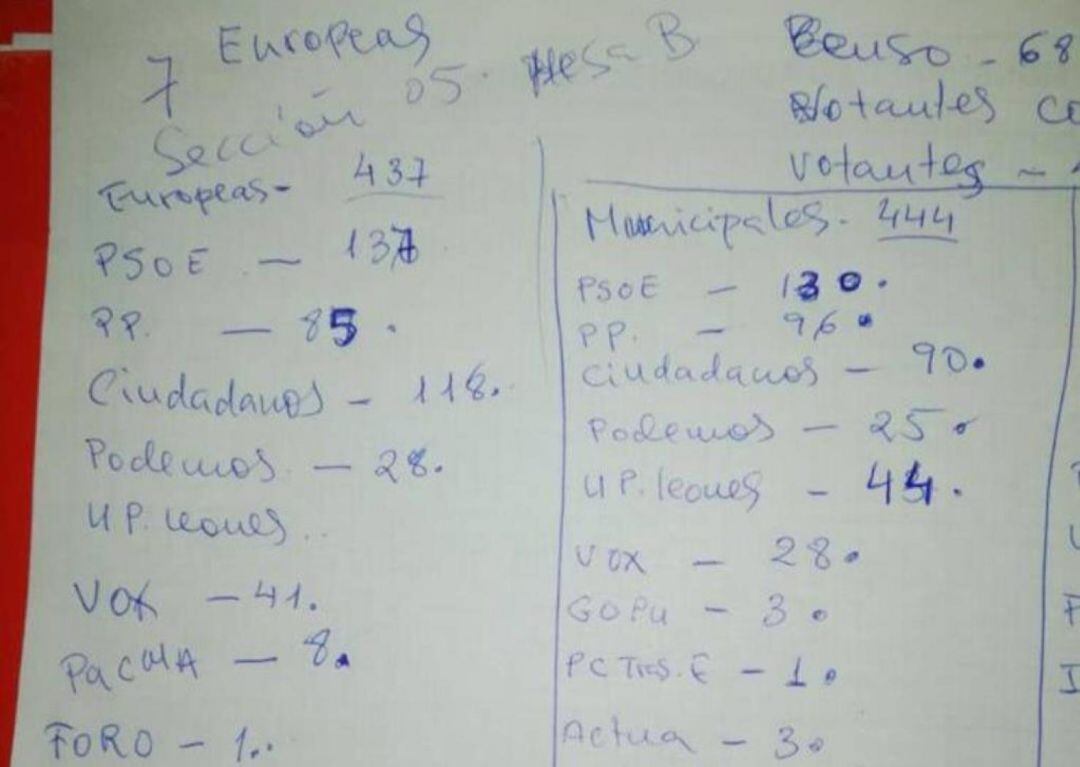 Europeas
7
Sección 05. Mesa B
Censo - 68
Votantes ce
votantes -
Europeas - 437
PSOE - 137
P.P. - 85.
Ciudadanos - 118.
Podemos - 28.
U P. leones..
VOX - 41.
PACMA - 8.
FORO - 1..
Municipales - 444
PSOE - 130.
PP. - 96.
Ciudadanos - 90.
Podemos - 25.
U P. leones - 44.
VOX - 28.
PC Tras. E - 1.
Actua - 3.